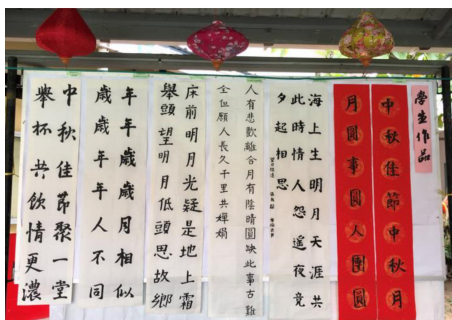 學生作品
中秋佳節中秋月
月圓事圓人團圓
海上生明月天涯共
此時情人怨遙夜竟
夕起相思
人有悲歡離合月有陰晴圓缺此事古難
全但願人長久千里共嬋娟
床前明月光疑是地上霜
舉頭望明月低頭思故鄉
年年歲歲月相似
歲歲年年人不同
中秋佳節聚一堂
舉杯共飲情更濃